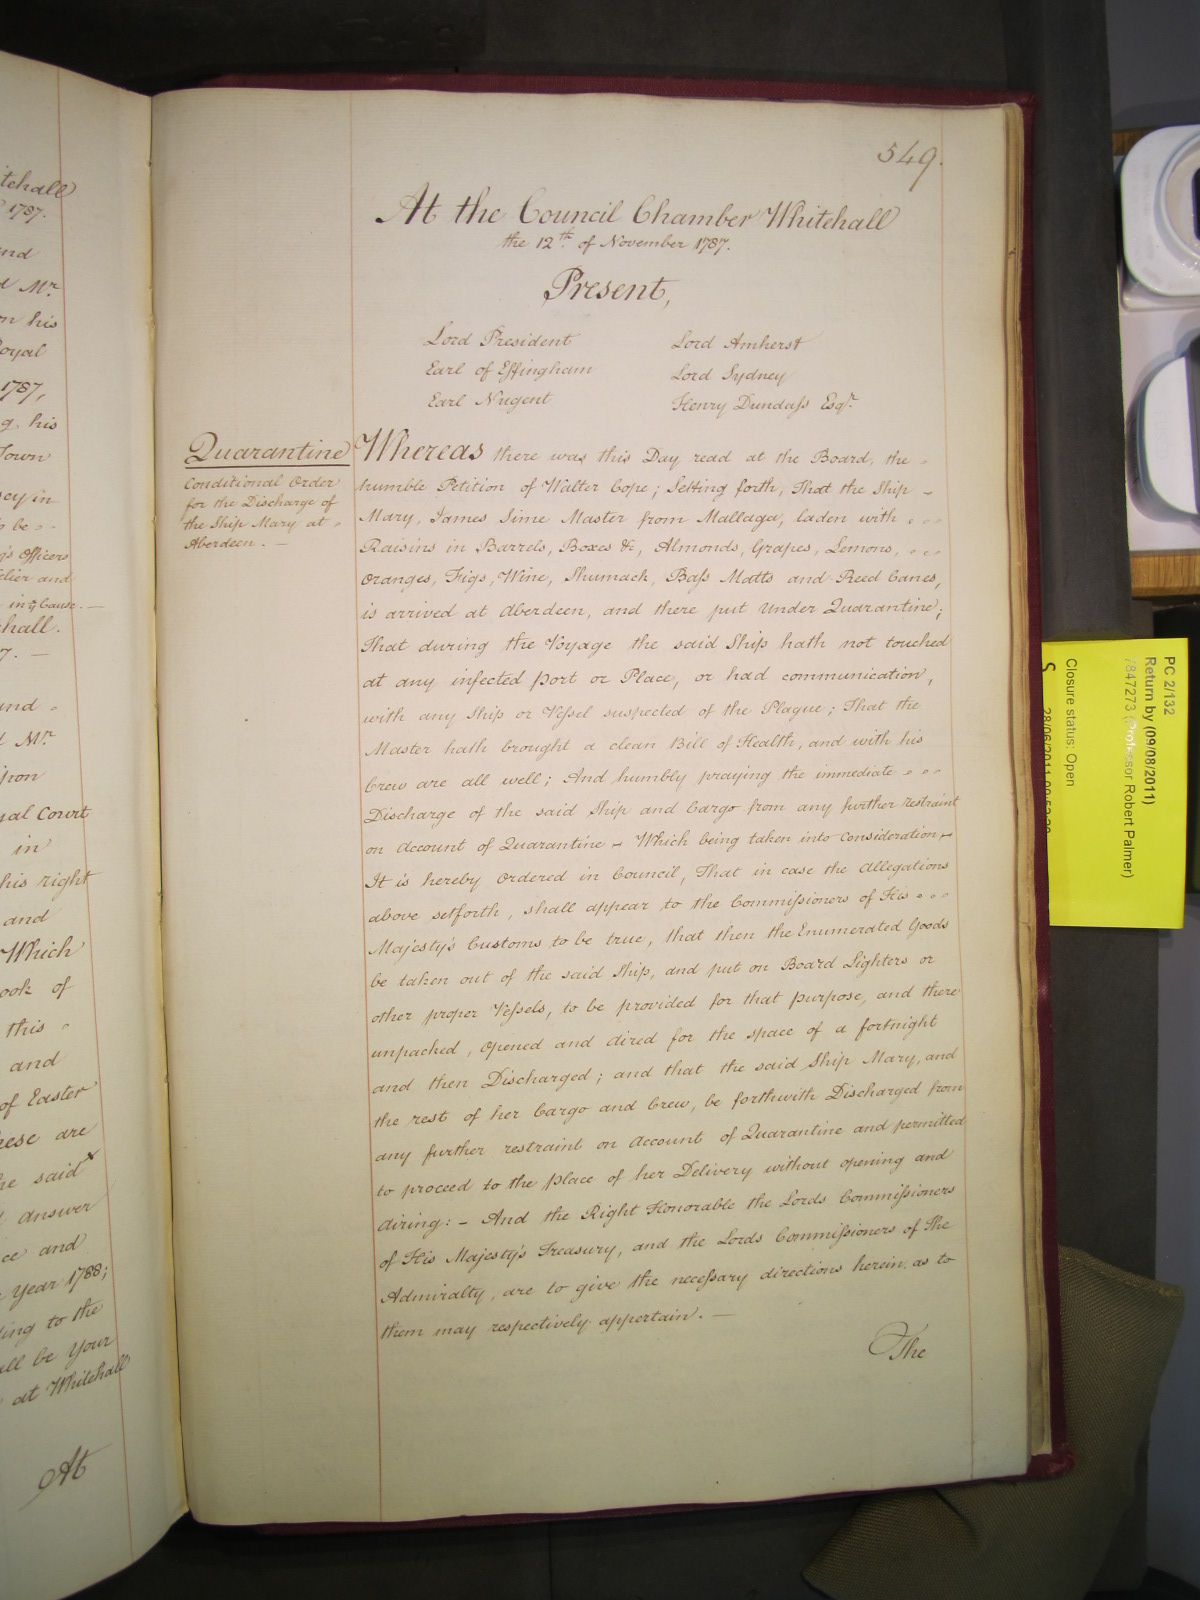 itehall
1787.
and
d Mr.
on his
Royal
1787,
g his
Town
cey in
to be
g's Officers
telier and
in ye Cause. —
hall.
7. —
und
d Mr.
Upon
yal Court
in
his right
and
Which
ook of
this
and
of Easter
hese are
he said x
answer
ce and
Year 1788;
ding to the
all be Your
at Whitehall
At
549.
At the Council Chamber Whitehall
the 12th. of November 1787.
Present,
Lord President Lord Amherst
Earl of Effingham Lord Sydney
Earl Nugent Henry Dundass Esqr.
Quarantine
Conditional Order
for the Discharge of
the Ship Mary at
Aberdeen. —
Whereas there was this Day read at the Board, the
humble Petition of Walter Cope; Setting forth, That the Ship
Mary, James Sime Master from Mallaga, laden with
Raisins in Barrels, Boxes &c, Almonds, Grapes, Lemons,
Oranges, Figs, Wine, Shumack, Bass Matts and Reed Canes,
is arrived at Aberdeen, and there put under Quarantine;
That during the Voyage the said Ship hath not touched
at any infected Port or Place, or had communication,
with any Ship or Vessel suspected of the Plague; That the
Master hath brought a clean Bill of Health, and with his
Crew are all well; And humbly praying the immediate
Discharge of the said Ship and Cargo from any further restraint
on Account of Quarantine – Which being taken into Consideration –
It is hereby Ordered in Council, That in case the Allegations
above setforth, shall appear to the Commissioners of His
Majesty's Customs to be true, that then the Enumerated Goods
be taken out of the said Ship, and put on Board Lighters or
other proper Vessels, to be provided for that purpose, and there
unpacked, Opened and Aired for the space of a fortnight
and then Discharged; and that the said Ship Mary, and
the rest of her Cargo and Crew, be forthwith Discharged from
any further restraint on Account of Quarantine and permitted
to proceed to the Place of her Delivery without opening and
Airing: – And the Right Honorable the Lords Commissioners
of His Majesty's Treasury, and the Lords Commissioners of The
Admiralty, are to give the necessary directions herein as to
them may respectively appertain. —
The
PC 2/132
Return by (09/08/2011)
7847273 (Professor Robert Palmer)
Closure status: Open
S